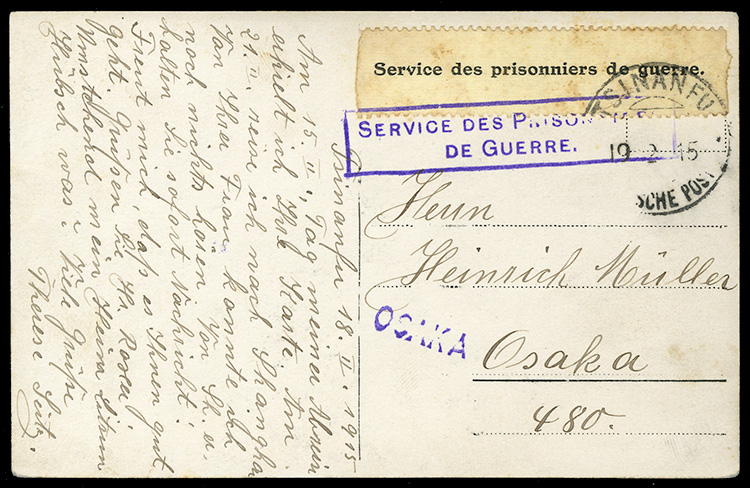 Service des prisonniers de guerre.
SERVICE DES PRISON
DE GUERRE.
TSINANFU
19 2 15
SCHE POST
Herrn
Heinrich Müller
Osaka
480.
OSAKA
Tsinanfu 18. II. 1915
Am 15. II., Tag meiner
erhielt ich Ihre Karte. Am
21. II. ich nach Shanghai
Von Ihrer Frau konnte ich
noch nichts hören. Von Sh. er-
halten Sie sofort Nachricht.
Freut mich, daß es Ihnen gut
geht. Grüßen Sie H.
Umstehend mein Heim
Hübsch was? Viele Grüße
Therese Seitz.